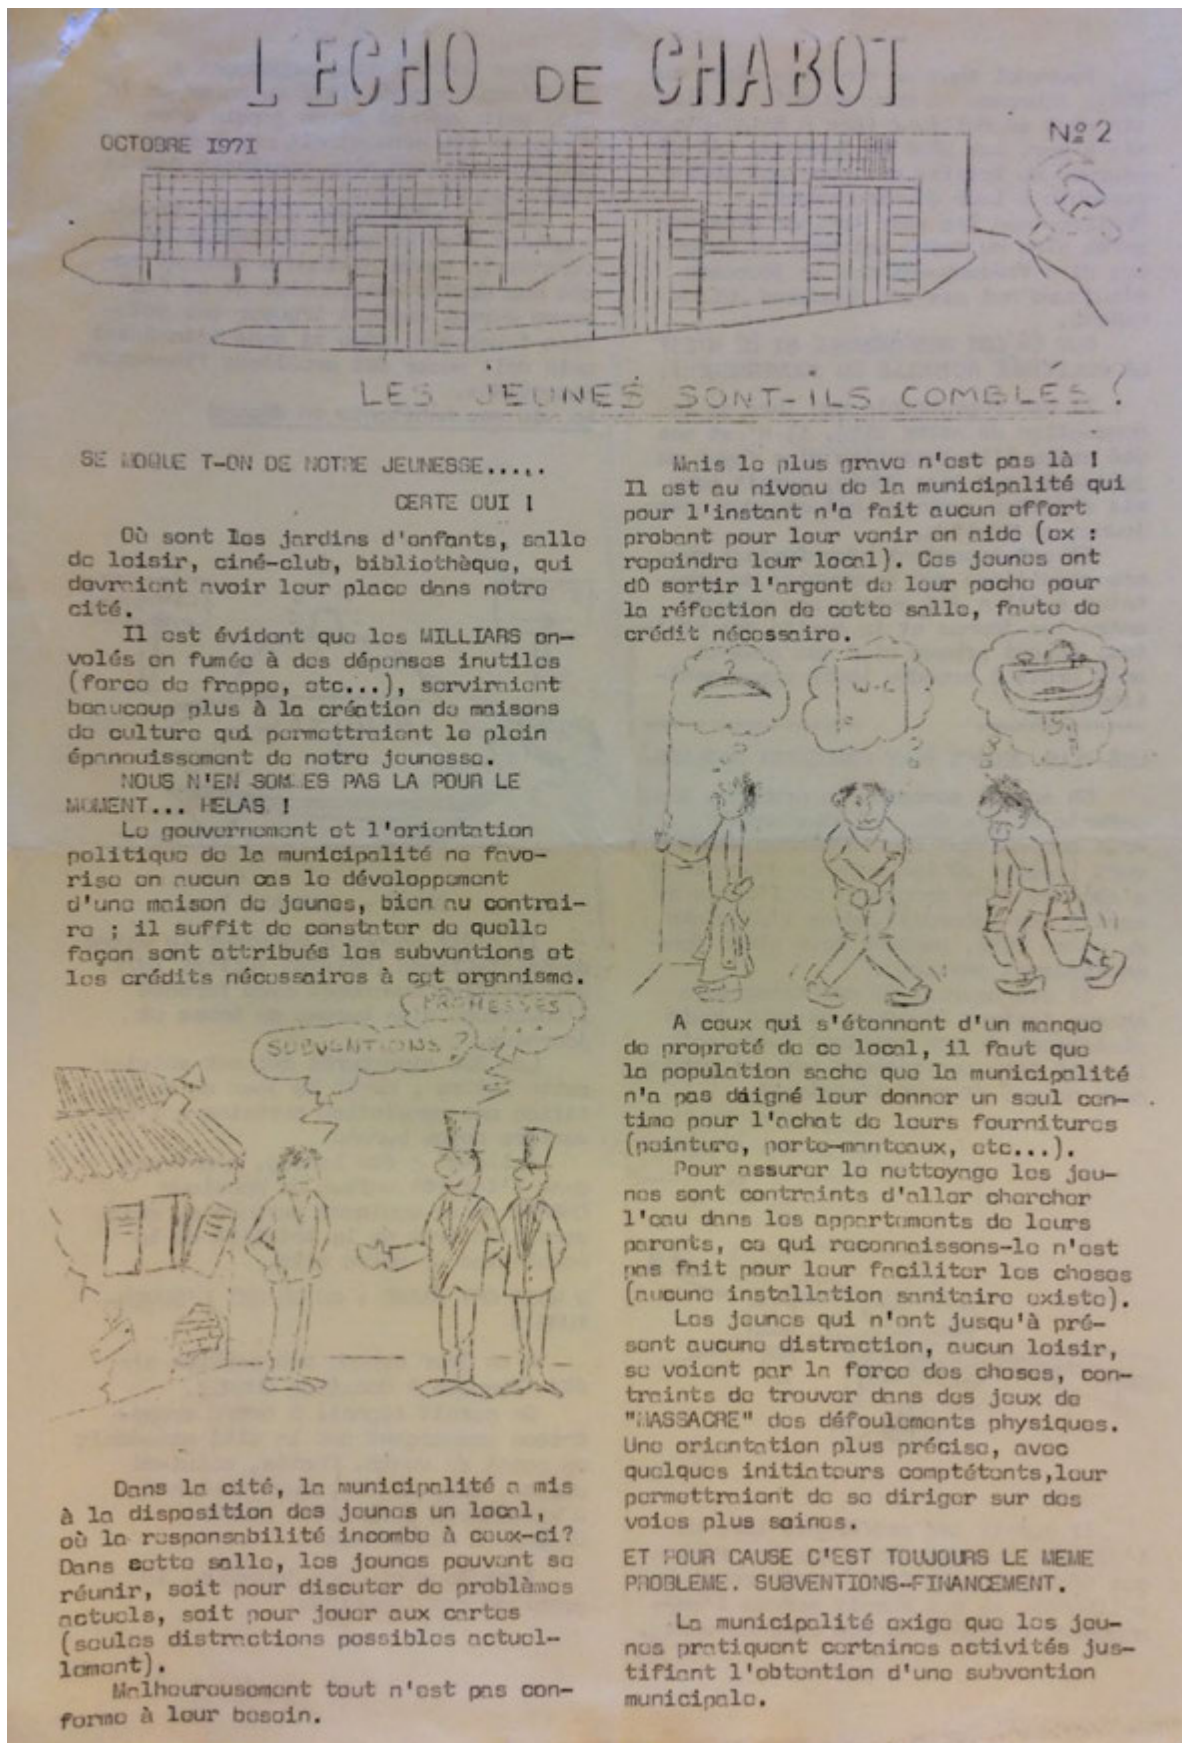 L'ECHO DE CHABOT
OCTOBRE I97I
Nº 2
LES JEUNES SONT-ILS COMBLÉS ?
SE MOQUE T-ON DE NOTRE JEUNESSE.....
CERTE OUI !
Où sont les jardins d'enfants, salle
de loisir, ciné-club, bibliothèque, qui
devraient avoir leur place dans notre
cité.
Il est évident que les MILLIARS en-
volés en fumée à des dépenses inutiles
(force de frappe, etc...), serviraient
beaucoup plus à la création de maisons
de culture qui permettraient le plein
épanouissement de notre jeunesse.
NOUS N'EN SOM ES PAS LA POUR LE
MOMENT... HELAS !
Le gouvernement et l'orientation
politique de la municipalité ne favo-
rise en aucun cas le développement
d'une maison de jeunes, bien au contrai-
re ; il suffit de constater de quelle
façon sont attribués les subventions et
les crédits nécessaires à cet organisme.
PROMESSES
SUBVENTIONS ?
Dans la cité, la municipalité a mis
à la disposition des jeunes un local,
où la responsabilité incombe à ceux-ci?
Dans cette salle, les jeunes peuvent se
réunir, soit pour discuter de problèmes
actuels, soit pour jouer aux cartes
(seules distractions possibles actuel-
lement).
Malheureusement tout n'est pas con-
forme à leur besoin.
Mais le plus grave n'est pas là !
Il est au niveau de la municipalité qui
pour l'instant n'a fait aucun effort
probant pour leur venir en aide (ex :
repeindre leur local). Ces jeunes ont
dû sortir l'argent de leur poche pour
la réfection de cette salle, faute de
crédit nécessaire.
?
W-C
A ceux qui s'étonnent d'un manque
de propreté de ce local, il faut que
la population sache que la municipalité
n'a pas daigné leur donner un seul cen-
time pour l'achat de leurs fournitures
(peinture, porte-manteaux, etc...).
Pour assurer le nettoyage les jeu-
nes sont contraints d'aller chercher
l'eau dans les appartements de leurs
parents, ce qui reconnaissons-le n'est
pas fait pour leur faciliter les choses
(aucune installation sanitaire existe).
Les jeunes qui n'ont jusqu'à pré-
sent aucune distraction, aucun loisir,
se voient par la force des choses, con-
traints de trouver dans des jeux de
"MASSACRE" des défoulements physiques.
Une orientation plus précise, avec
quelques initiateurs comptétents,leur
permettraient de se diriger sur des
voies plus saines.
ET POUR CAUSE C'EST TOUJOURS LE MEME
PROBLEME. SUBVENTIONS-FINANCEMENT.
La municipalité exige que les jeu-
nes pratiquent certaines activités jus-
tifiant l'obtention d'une subvention
municipale.